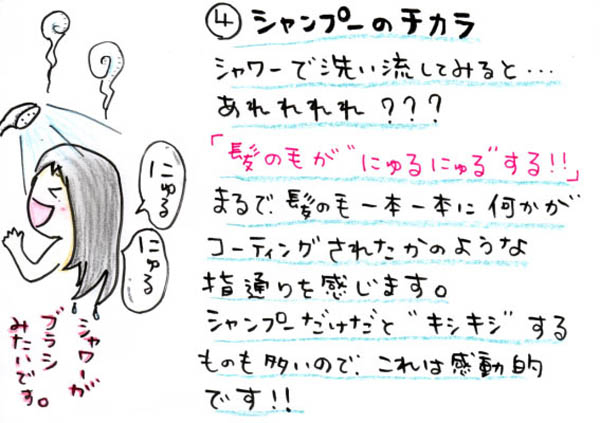 ④ シャンプーのチカラ
シャワーで洗い流してみると…
あれれれれ???
「髪の毛が"にゅるにゅる"する!!」
まるで、髪の毛一本一本に何かが
コーティングされたかのような
指通りを感じます。
シャンプーだけだと"キシキシ"する
ものも多いので、これは感動的
です!!
にゅる
にゅる
シャワーが
ブラシ
みたいです。